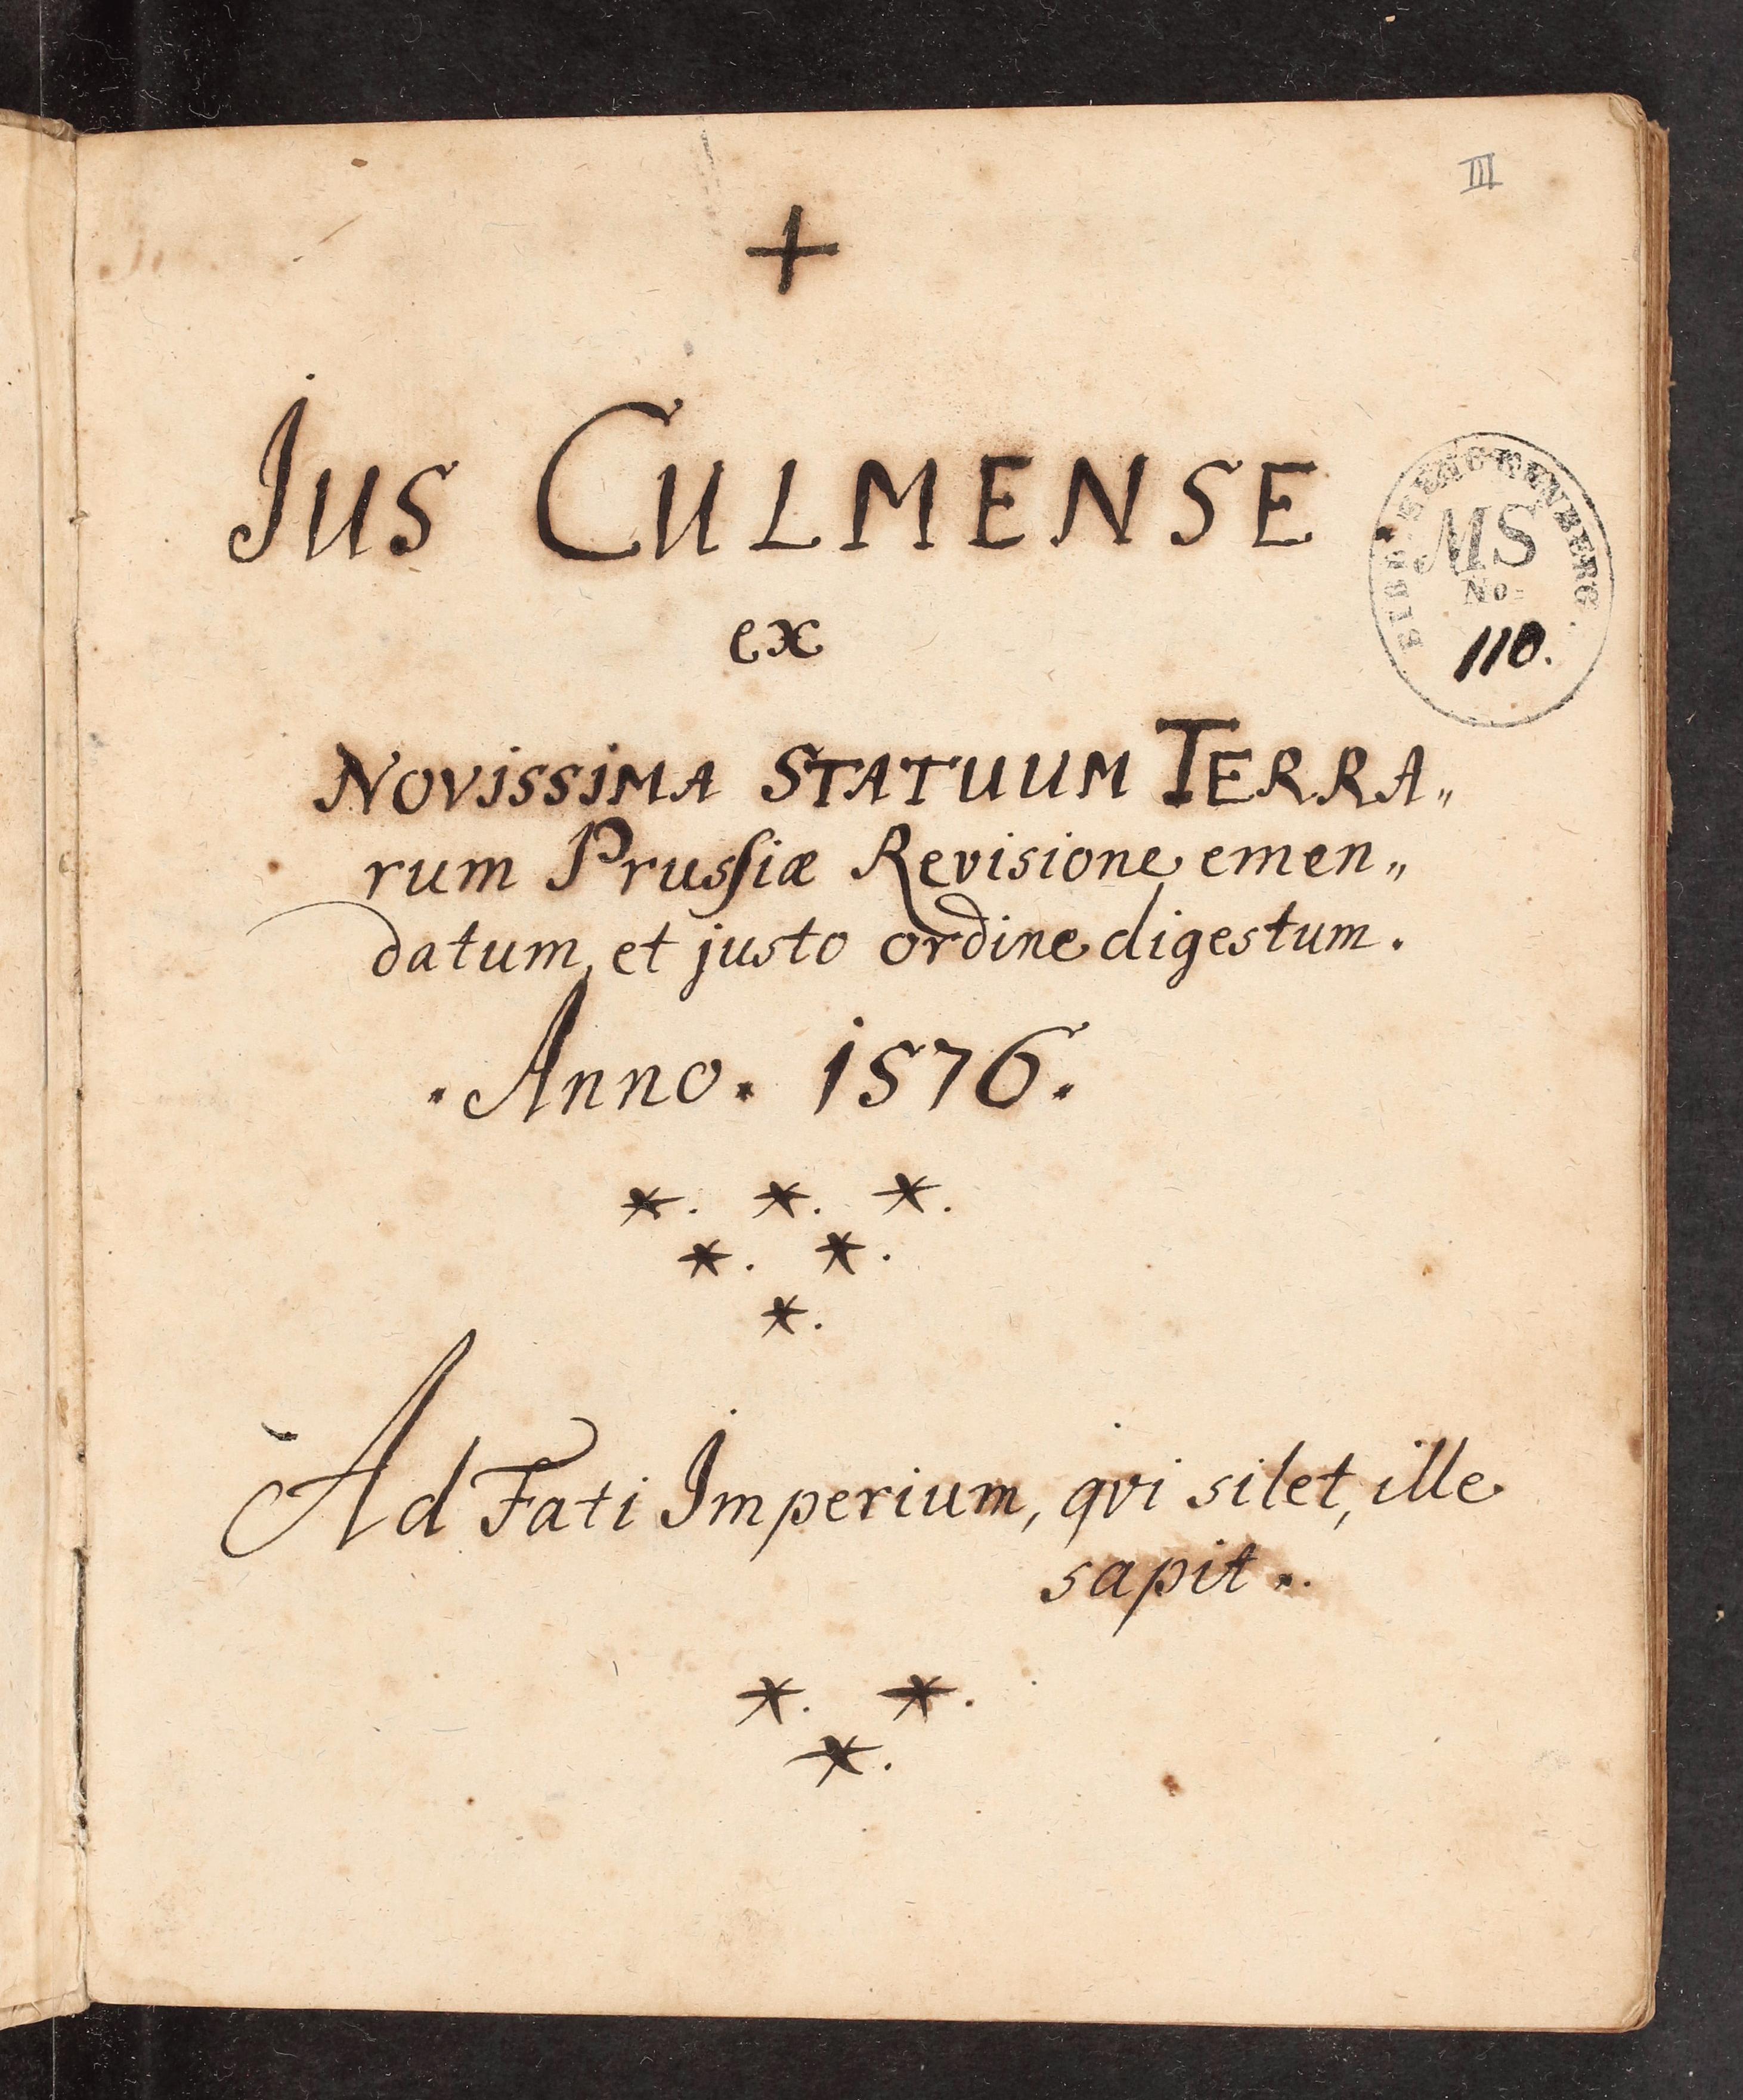 III
+
Jus CULMENSE
ex
NOVISSIMA STATUUM TERRA„
rum Prussiæ Revisione emen„
datum, et justo ordine digestum.
. Anno. 1576.
*. *. *.
*. *.
*.
Ad Fati Imperium, qvi silet, ille
sapit..
*. *.
*.
MS
No=
110.